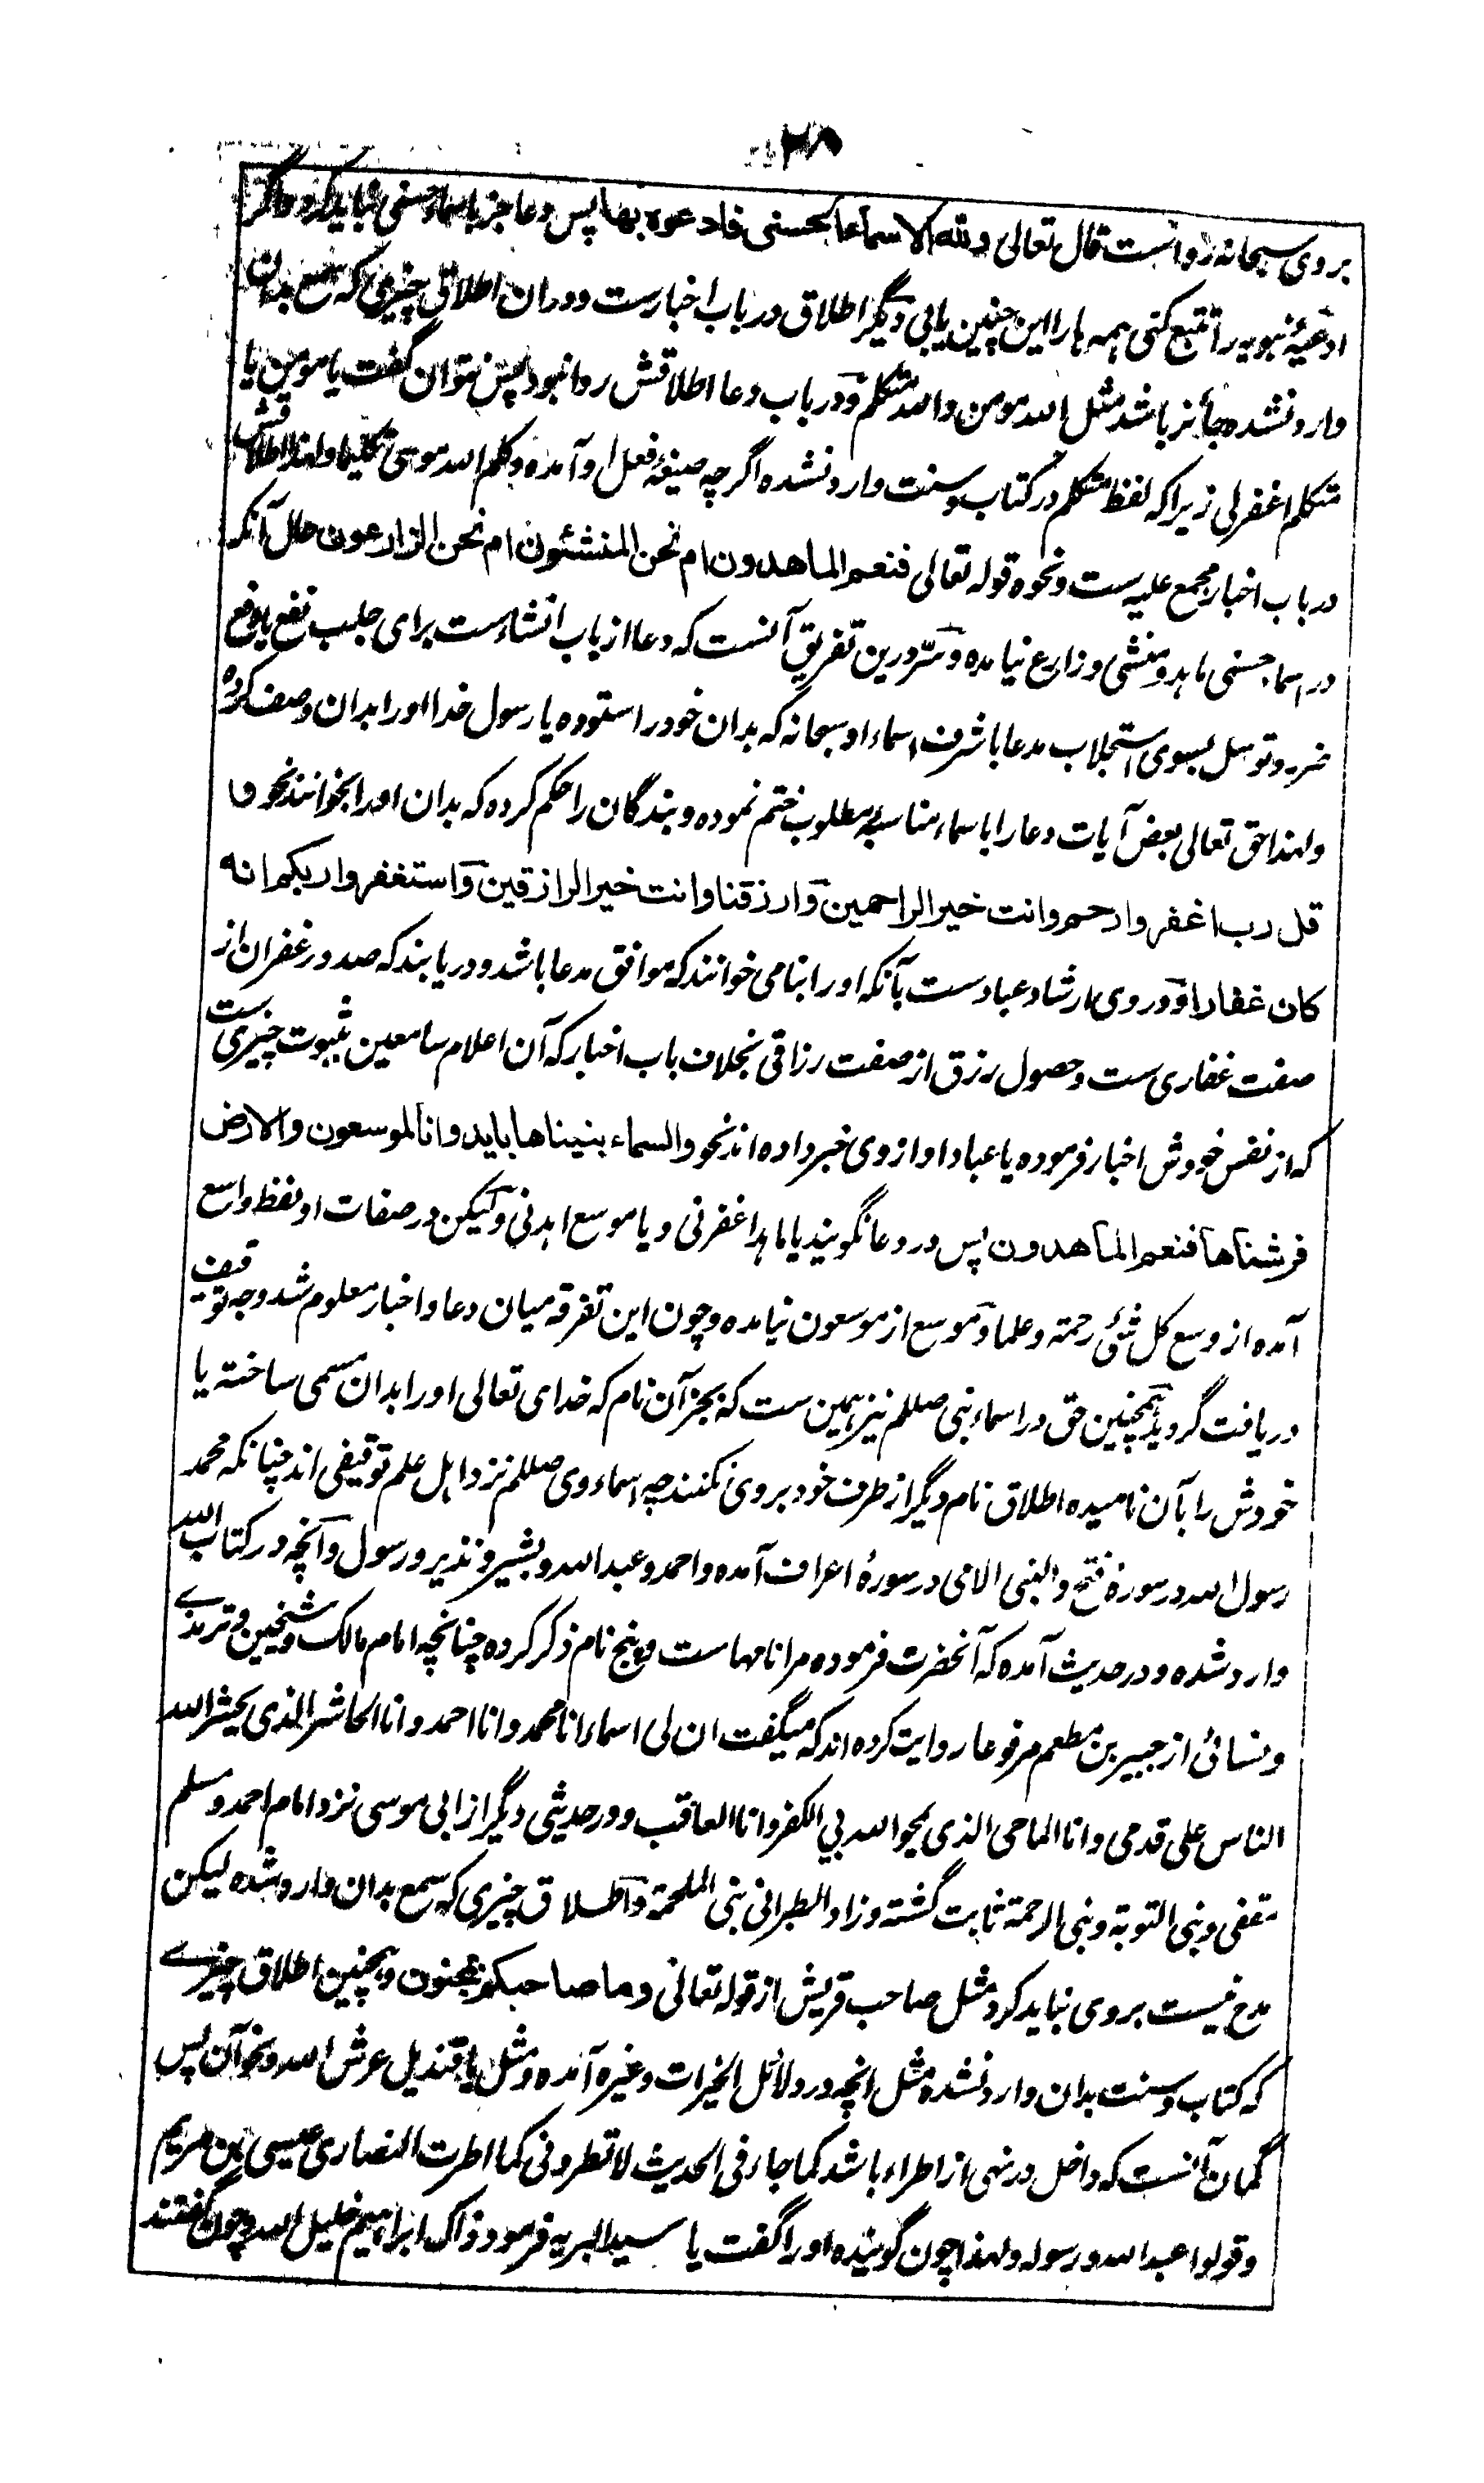 ۲۸
بروی سبحانه رواست قال تعالی ولله الاسماء الحسنی فادعوه بها پس دعا جز باسماء حسنی نباید کرد و اگر
ادعیۀ نبویه را تتبع کنی همه ها را این چنین یابی دیگر اطلاق در باب اخبارست و دران اطلاق چیزی که سمع بدان
وارد نشده جائز باشد مثل الله مومن والله متکلم و در باب دعا اطلاقش روا نبود پس نتوان گفت یا مومن یا
متکلم اغفرلی زیرا که لفظ متکلم در کتاب و سنت وارد نشده اگرچه صیغۀ فعل او آمده وکلم الله موسی تکلیما ولهذا اطلاقش
در باب اخبار مجمع علیه ست ونحوه قوله تعالی فنعم الماهدون ام نحن المنشئون ام نحن الزارعون حال آنکه
در اسماء حسنی ماهد و منشی و زارع نیامده و سر درین تفریق آنست که دعا از باب انشاءست برای جلب نفع یا دفع
ضرر و توسل بسوی استجلاب مدعا باشرف اسماء او سبحانه که بدان خود را ستوده یا رسول خدا او را بدان وصف کرده
ولهذا حق تعالی بعض آیات دعا را باسماء مناسبۀ مطلوب ختم نموده و بندگان را حکم کرده که بدان او را بخوانند نحو
قل رب اغفر وارحم وانت خیر الراحمین وارزقنا وانت خیر الرازقین واستغفروا ربکم انه
کان غفارا و دروی ارشاد عبادست بآنکه او را بنامی خوانند که موافق مدعا باشد و دریابند که صدور غفران از
صفت غفاری ست و حصول رزق از صفت رزاقی بخلاف باب اخبار که آن اعلام سامعین بثبوت چیزی ست
که از نفس خودش اخبار فرموده یا عباد او از وی خبر داده اند نحو والسماء بنیناها باید وانا لموسعون والارض
فرشناها فنعم الماهدون پس در دعا نگویند یا ماهد اغفرنی و یا موسع اهدنی ولیکن در صفات او لفظ واسع
آمده از وسع کل شئ رحمة وعلما و موسع از موسعون نیامده و چون این تفرقه میان دعا و اخبار معلوم شد وجه توقیف
دریافت گردید همچنین حق در اسماء نبی صللم نیز همین ست که بجز آن نام که خدای تعالی او را بدان مسمی ساخته یا
خودش را بآن نامیده اطلاق نام دیگر از طرف خود بروی نکنند چه اسماء وی صللم نزد اهل علم توقیفی اند چنانکه محمد
رسول الله در سورۀ فتح والنبی الامی در سورۀ اعراف آمده واحمد وعبدالله و بشیر و نذیر و رسول و آنچه در کتاب الله
وارد شده و در حدیث آمده که آنحضرت فرموده مرا نامهاست و پنج نام ذکر کرده چنانچه امام مالک و شیخین و ترمذے
و نسائی از جبیر بن مطعم مرفوعا روایت کرده اند که میگفت ان لی اسماء انا محمد وانا احمد وانا الحاشر الذی یحشر الله
الناس علی قدمی وانا الماحی الذی یمحو الله بی الکفر وانا العاقب و در حدیثی دیگر از ابی موسی نزد امام احمد و مسلم
مقفی ونبی التوبة ونبی الرحمة ثابت گشته وزاد الطبرانی نبی الملحمة و اطلاق چیزی که سمع بدان وارد شده لیکن
مدح نیست بروی نباید کرد مثل صاحب قریش از قوله تعالی وما صاحبکم بمجنون و همچنین اطلاق چیزے
که کتاب و سنت بدان وارد نشده مثل انچه در دلائل الخیرات وغیره آمده و مثل یا قندیل عرش الله و نحو آن پس
گمان آنست که داخل در نهی از اطراء باشد کما جاء فی الحدیث لا تطرونی کما اطرت النصاری عیسی بن مریم
وقولوا عبدالله ورسوله ولهذا چون گوینده او را گفت یا سید البریه فرمود ذاک ابراهیم خلیل الله و چون گفتند